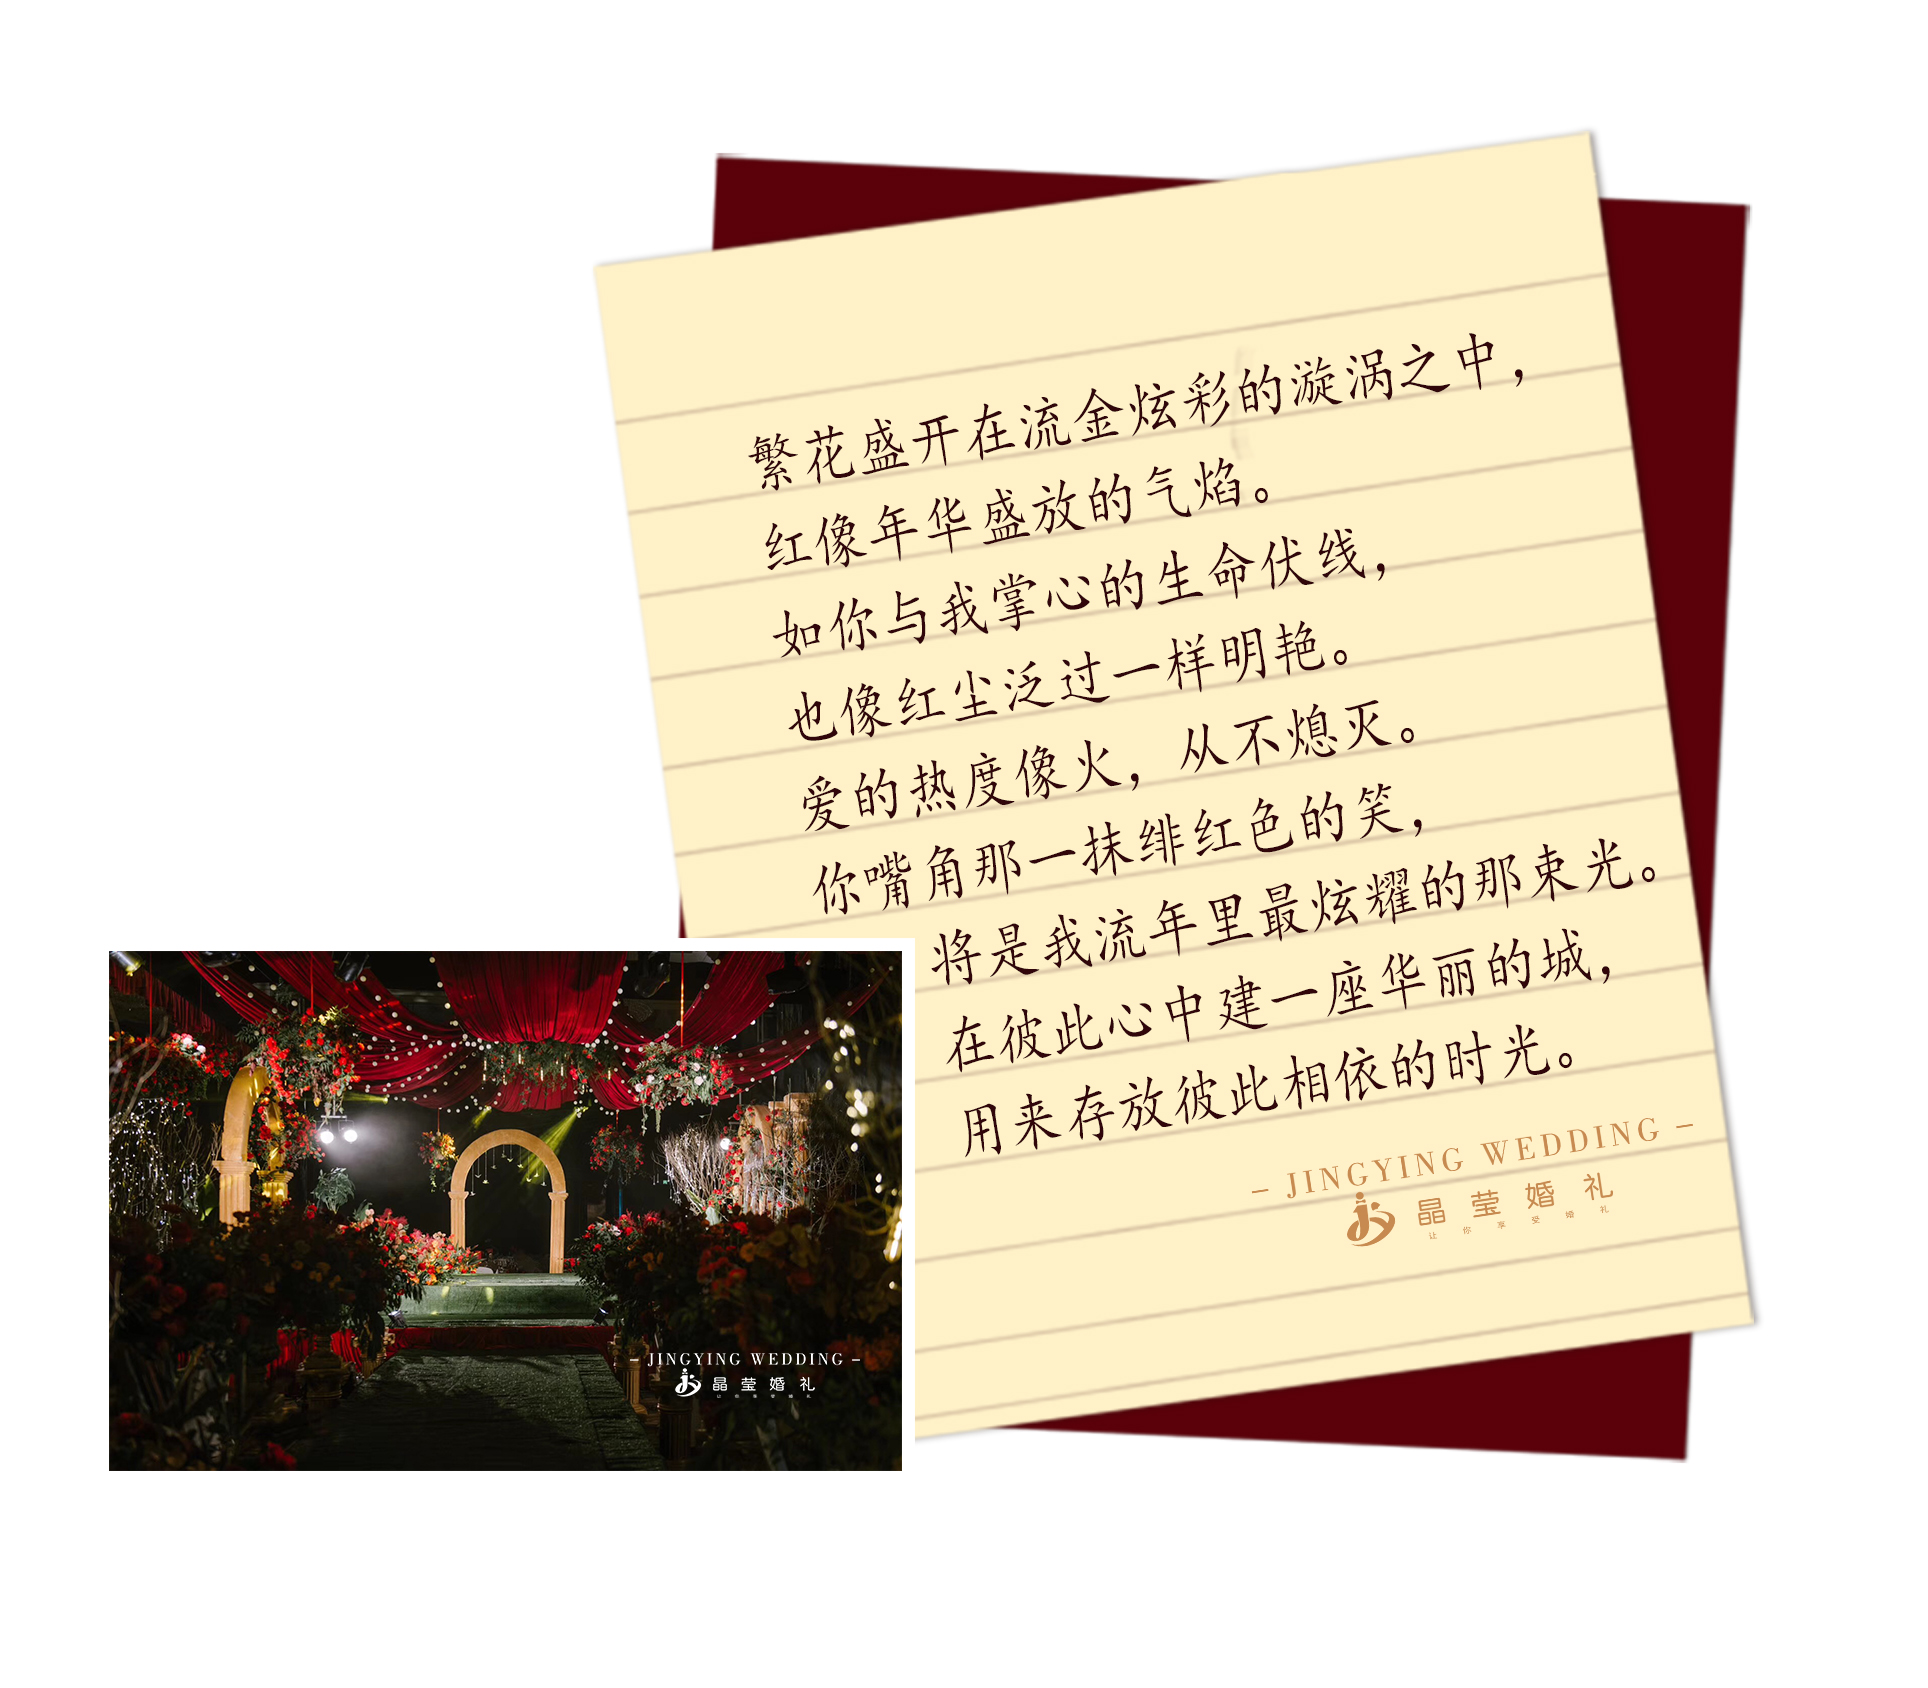 繁花盛开在流金炫彩的漩涡之中，
红像年华盛放的气焰。
如你与我掌心的生命伏线，
也像红尘泛过一样明艳。
爱的热度像火，从不熄灭。
你嘴角那一抹绯红色的笑，
将是我流年里最炫耀的那束光。
在彼此心中建一座华丽的城，
用来存放彼此相依的时光。
– JINGYING WEDDING –
晶莹婚礼
让你享受婚礼
– JINGYING WEDDING –
晶莹婚礼